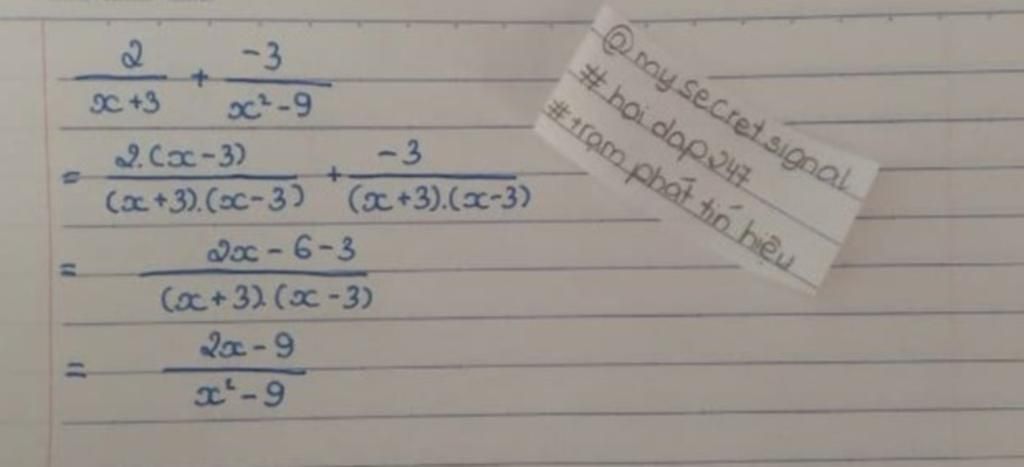 2/(x+3) + -3/(x²-9)
= 2.(x-3)/((x+3).(x-3)) + -3/((x+3).(x-3))
= (2x-6-3)/((x+3).(x-3))
= (2x-9)/(x²-9)
@mysecretsignal
#hoidap247
#trạm phát tín hiệu